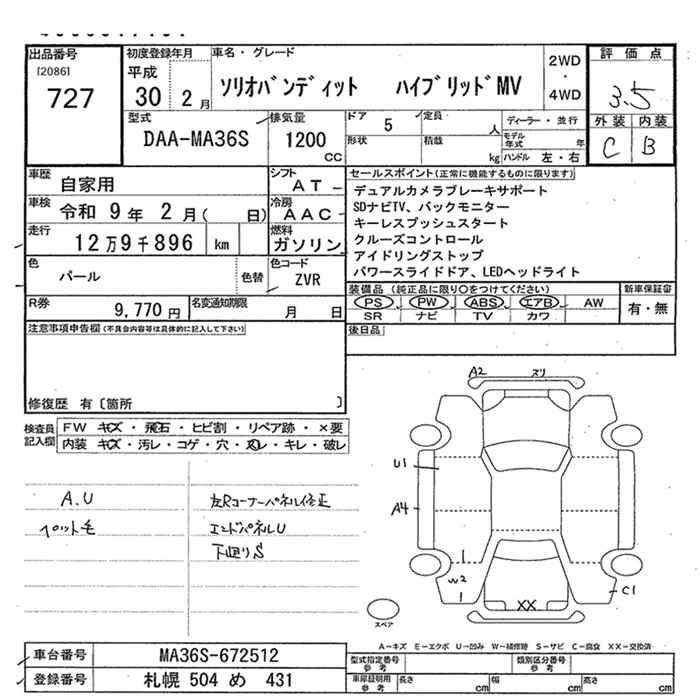 出品番号
[2086]
727
初度登録年月
平成
30 2月
車名・グレード
ソリオバンディット ハイブリッドMV
2WD
・
4WD
評価点
3.5
外装 内装
C B
型式
DAA-MA36S
排気量
1200
CC
ドア 5
定員 人
形状
積載 kg
ディーラー・並行
モデル年式 年
ハンドル 左・右
車歴
自家用
シフト
AT
車検
令和 9年 2月( 日)
冷房
AAC
走行
12万9千896 km
燃料
ガソリン
色
パール
色替
色コード
ZVR
R券
9,770円
名変通知期限
月 日
セールスポイント(正常に機能するものに限ります)
デュアルカメラブレーキサポート
SDナビTV、バックモニター
キーレスプッシュスタート
クルーズコントロール
アイドリングストップ
パワースライドドア、LEDヘッドライト
装備品 (純正品に限り○をつけてください)
PS PW ABS エアB AW
SR ナビ TV カワ
新車保証書
有・無
後日品
注意事項申告欄(不具合内容等は具体的に記入して下さい)
修復歴 有〔箇所 〕
検査員記入欄
FW キズ・飛石・ヒビ割・リペア跡・×要
内装 キズ・汚レ・コゲ・穴・スレ・キレ・破レ
A.U
ペット毛
左Rコーナーパネル修正
エンドパネルU
下廻りS
A2 スリ
U1
A4
W2
1
1
XX
C1
スペア
A-キズ E-エクボ U-凹み W-補修跡 S-サビ C-腐食 XX-交換済
車台番号
MA36S-672512
登録番号
札幌 504 め 431
型式指定番号
参考
類別区分番号
参考
車庫証明用
参考
長さ cm
幅 cm
高さ cm